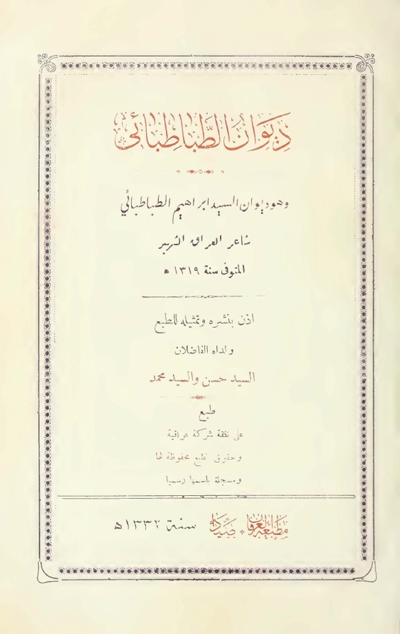 ديوان الطباطبائي
وهو ديوان السيد ابراهيم الطباطبائي
شاعر العراق الشهير
المتوفى سنة ١٣١٩ ه
اذن بنشره وتمثيله للطبع
ولداه الفاضلان
السيد حسن والسيد محمد
طبع
على نفقة شركة عراقية
وحقوق الطبع محفوظة لها
ومسجلة باسمها رسميا
مطبعة العرفان صيدا سنة ١٣٣٢ه